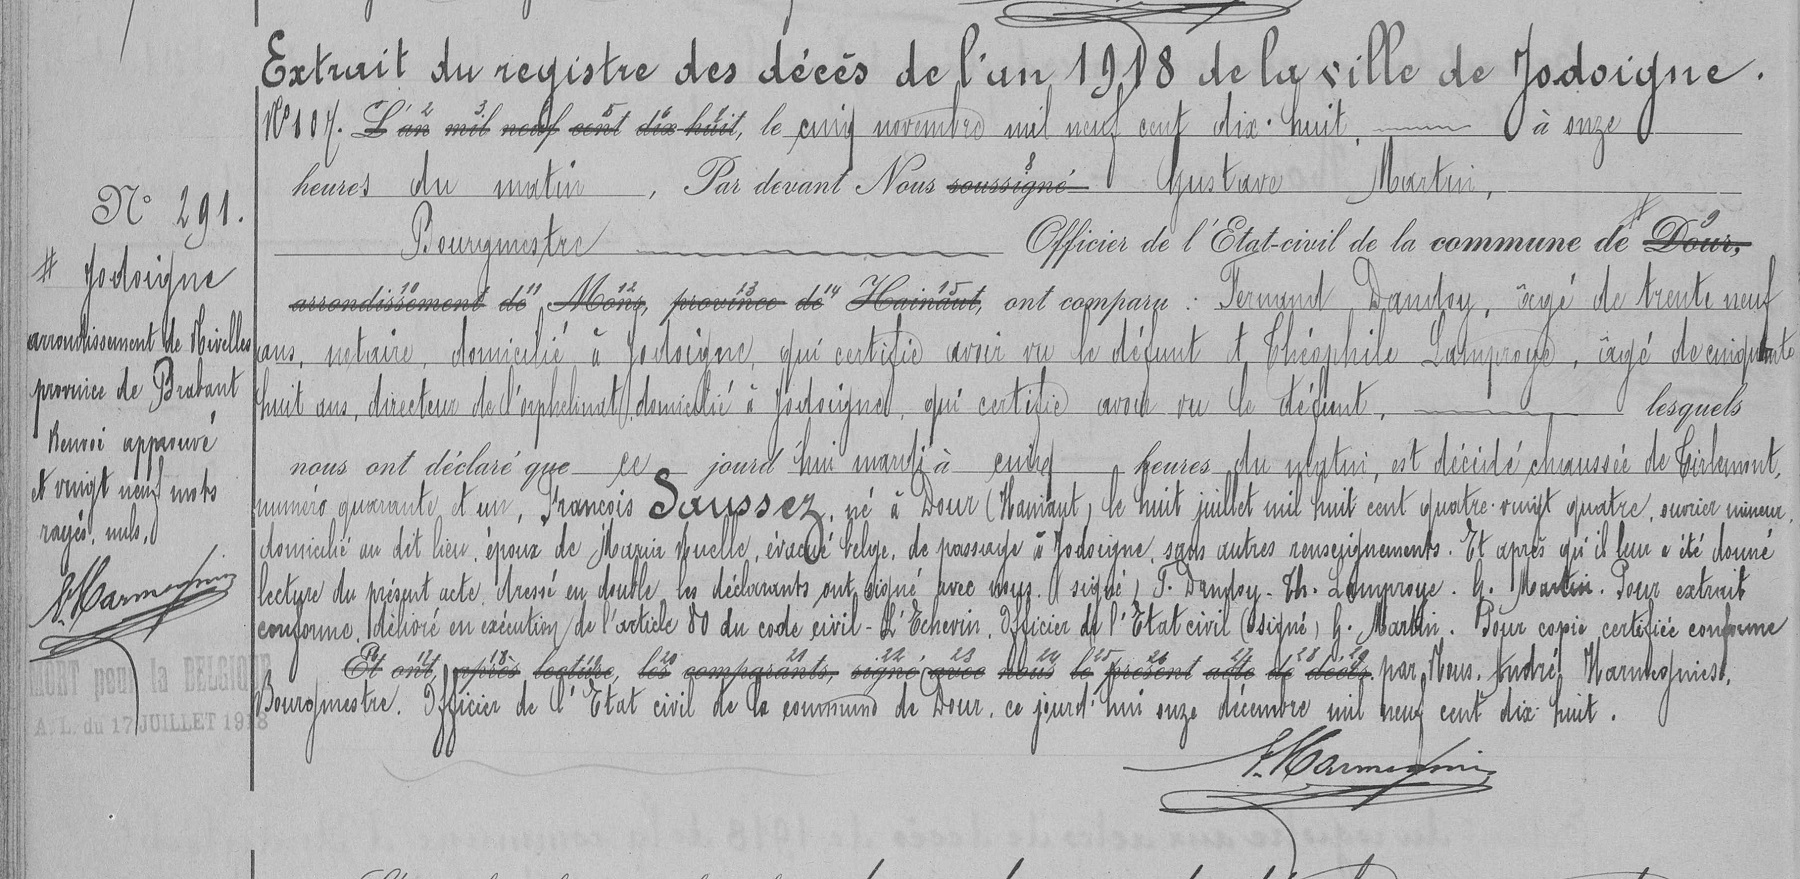 Extrait du registre des décès de l'an 1918 de la ville de Jodoigne.
N° 107. L'an mil neuf cent dix-huit, le cinq novembre mil neuf cent dix-huit, à onze
heures du matin, Par devant Nous soussigné Gustave Martin,
N° 291.
Bourgmestre Officier de l'Etat-civil de la commune de # Dour,
# Jodoigne
arrondissement de Mons, province de Hainaut, ont comparu : Fernand Dandoy, âgé de trente neuf
arrondissement de Nivelles
ans, notaire, domicilié à Jodoigne, qui certifie avoir vu le défunt et Théophile Lamproye, âgé de cinquante
province de Brabant
huit ans, directeur de l'orphelinat, domicilié à Jodoigne, qui certifie avoir vu le défunt, lesquels
Renvoi approuvé
nous ont déclaré que ce jourd'hui mardi à cinq heures du matin, est décédé chaussée de Tirlemont,
et vingt neuf mots
numéro quarante et un, François Saussez, né à Dour (Hainaut) le huit juillet mil huit cent quatre-vingt quatre, ouvrier mineur,
rayés, nuls.
domicilié au dit lieu, époux de Maria Nuelle, évacué belge, de passage à Jodoigne, sans autres renseignements. Et après qu'il leur a été donné
lecture du présent acte, dressé en double, les déclarants ont signé avec nous. (signé) F. Dandoy - Th. Lamproye. G. Martin. Pour extrait
conforme, délivré en exécution de l'article 80 du code civil - L'Echevin, Officier de l'Etat civil (signé) G. Martin. Pour copie certifiée conforme
Et ont, après lecture, les comparants, signé avec nous le présent acte de décès, par Nous, André Harmegnies,
MORT pour la BELGIQUE
Bourgmestre, Officier de l'Etat civil de la commune de Dour, ce jourd'hui onze décembre mil neuf cent dix-huit.
A. L. du 17 JUILLET 1918